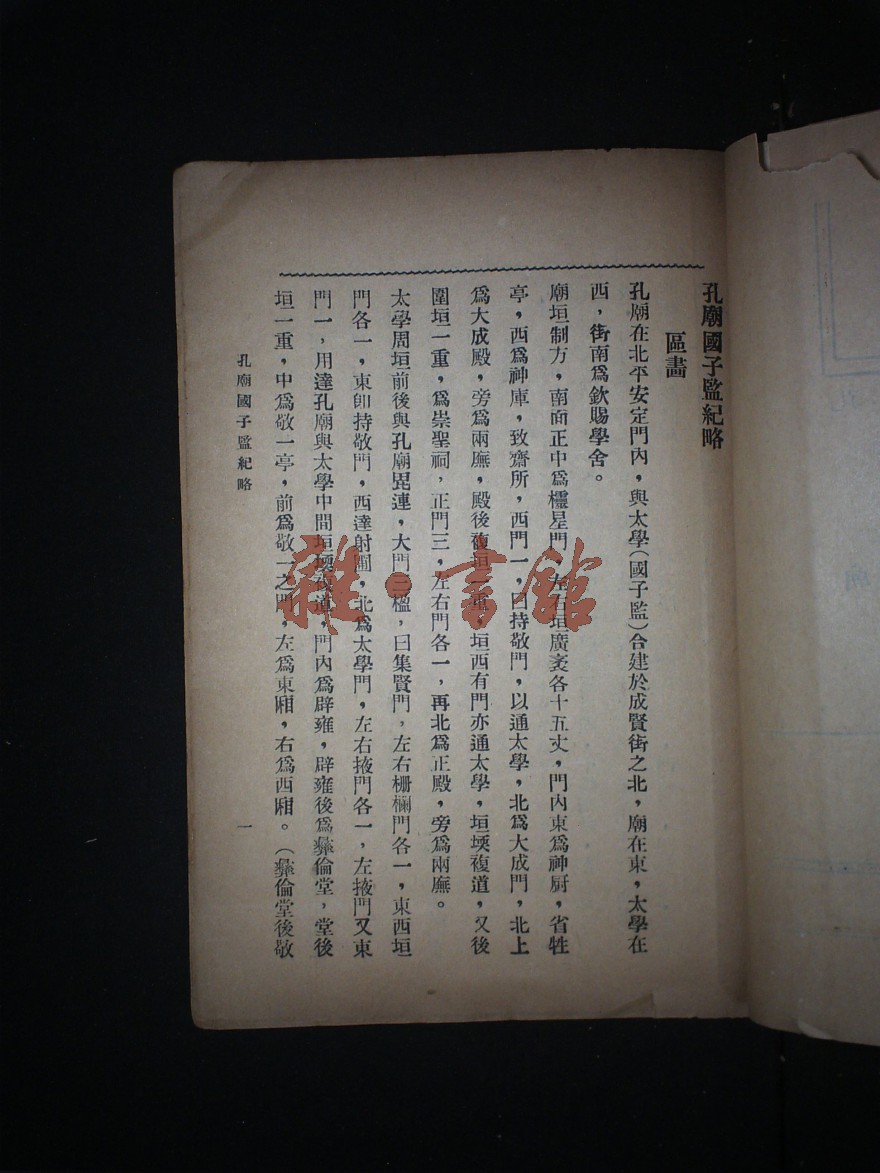 孔廟國子監紀略
區畫
孔廟在北平安定門內，與太學（國子監）合建於成賢街之北，廟在東，太學在
西，街南爲欽賜學舍。
廟垣制方，南面正中爲櫺星門，左右垣廣袤各十五丈，門內東爲神厨，省牲
亭，西爲神庫，致齋所，西門一，曰持敬門，以通太學，北爲大成門，北上
爲大成殿，旁爲兩廡，殿後復垣一重，垣西有門亦通太學，垣堧複道，又後
圍垣一重，爲崇聖祠，正門三，左右門各一，再北爲正殿，旁爲兩廡。
太學周垣前後與孔廟毘連，大門三楹，曰集賢門，左右柵欄門各一，東西垣
門各一，東卽持敬門，西達射圃，北爲太學門，左右掖門各一，左掖門又東
門一，用達孔廟與太學中間垣堧複道，門內爲辟雍，辟雍後爲彝倫堂，堂後
垣一重，中爲敬一亭，前爲敬一之門，左爲東廂，右爲西廂。（彝倫堂後敬
孔廟國子監紀略
一
雜·書館